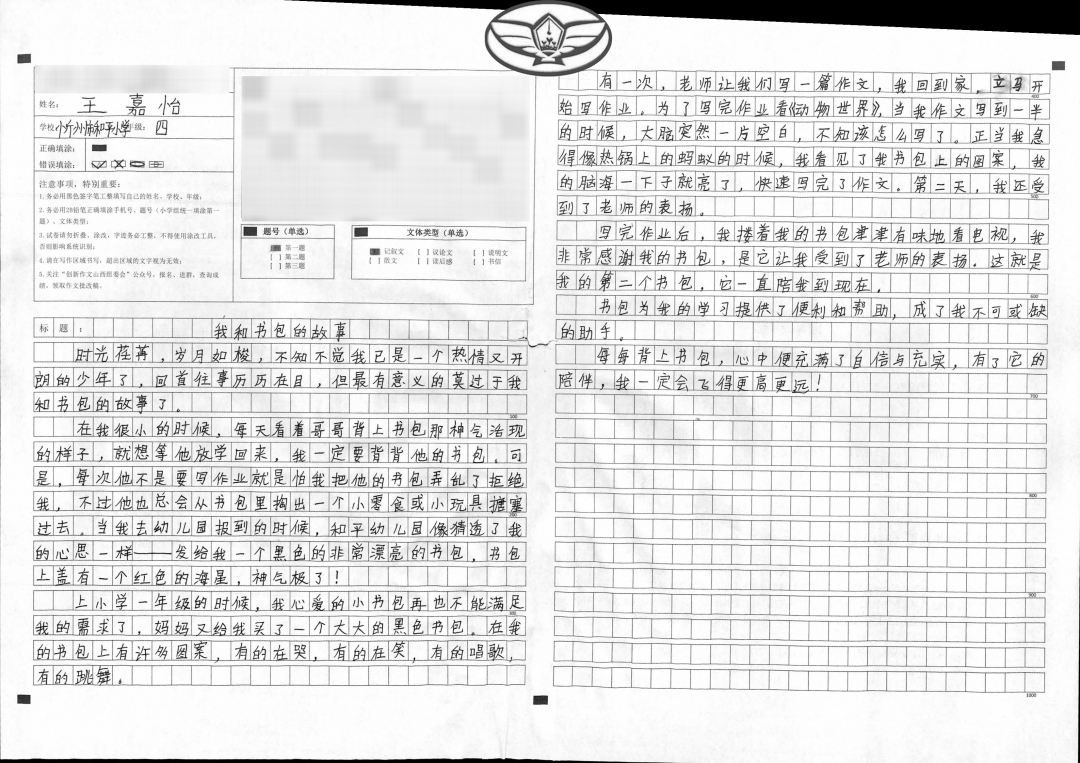 姓名： 王嘉怡
学校： 忻州市和平小学 年级： 四
正确填涂：
错误填涂：
注意事项，特别重要：
1.务必用黑色签字笔工整填写自己的姓名、学校、年级；
2.务必用2B铅笔正确填涂手机号、题号（小学组统一填涂第一
题）、文体类型；
3.试卷请勿折叠、涂改，字迹务必工整，不得使用涂改工具，
否则影响系统识别；
4.请在写作区域书写，超出区域的文字视为无效；
5.关注“创新作文山西组委会”公众号，报名、进群、查询成
绩、领取作文批改稿。
题号（单选）
第一题
[ ] 第二题
[ ] 第三题
文体类型（单选）
记叙文 [ ] 议论文 [ ] 说明文
[ ] 散文 [ ] 读后感 [ ] 书信
标题： 我和书包的故事
时光荏苒，岁月如梭，不知不觉我已是一个热情又开
朗的少年了，回首往事历历在目，但最有意义的莫过于我
和书包的故事了。
100
在我很小的时候，每天看着哥哥背上书包那神气活现
的样子，就想等他放学回来，我一定要背背他的书包。可
是，每次他不是要写作业就是怕我把他的书包弄乱了拒绝
我，不过他也总会从书包里掏出一个小零食或小玩具搪塞
200
过去。当我去幼儿园报到的时候，和平幼儿园像猜透了我
的心思一样——发给我一个黑色的非常漂亮的书包，书包
上盖有一个红色的海星，神气极了！
上小学一年级的时候，我心爱的小书包再也不能满足
300
我的需求了，妈妈又给我买了一个大大的黑色书包。在我
的书包上有许多图案，有的在哭，有的在笑，有的唱歌，
有的跳舞。
有一次，老师让我们写一篇作文，我回到家，立马开
400
始写作业。为了写完作业看《动物世界》，当我作文写到一半
的时候，大脑突然一片空白，不知该怎么写了。正当我急
得像热锅上的蚂蚁的时候，我看见了我书包上的图案，我
的脑海一下子就亮了，快速写完了作文。第二天，我还受
500
到了老师的表扬。
写完作业后，我搂着我的书包津津有味地看电视，我
非常感谢我的书包，是它让我受到了老师的表扬。这就是
我的第二个书包，它一直陪我到现在。
600
书包为我的学习提供了便利和帮助，成了我不可或缺
的助手。
每每背上书包，心中便充满了自信与充实，有了它的
陪伴，我一定会飞得更高更远！
700
800
900
1000